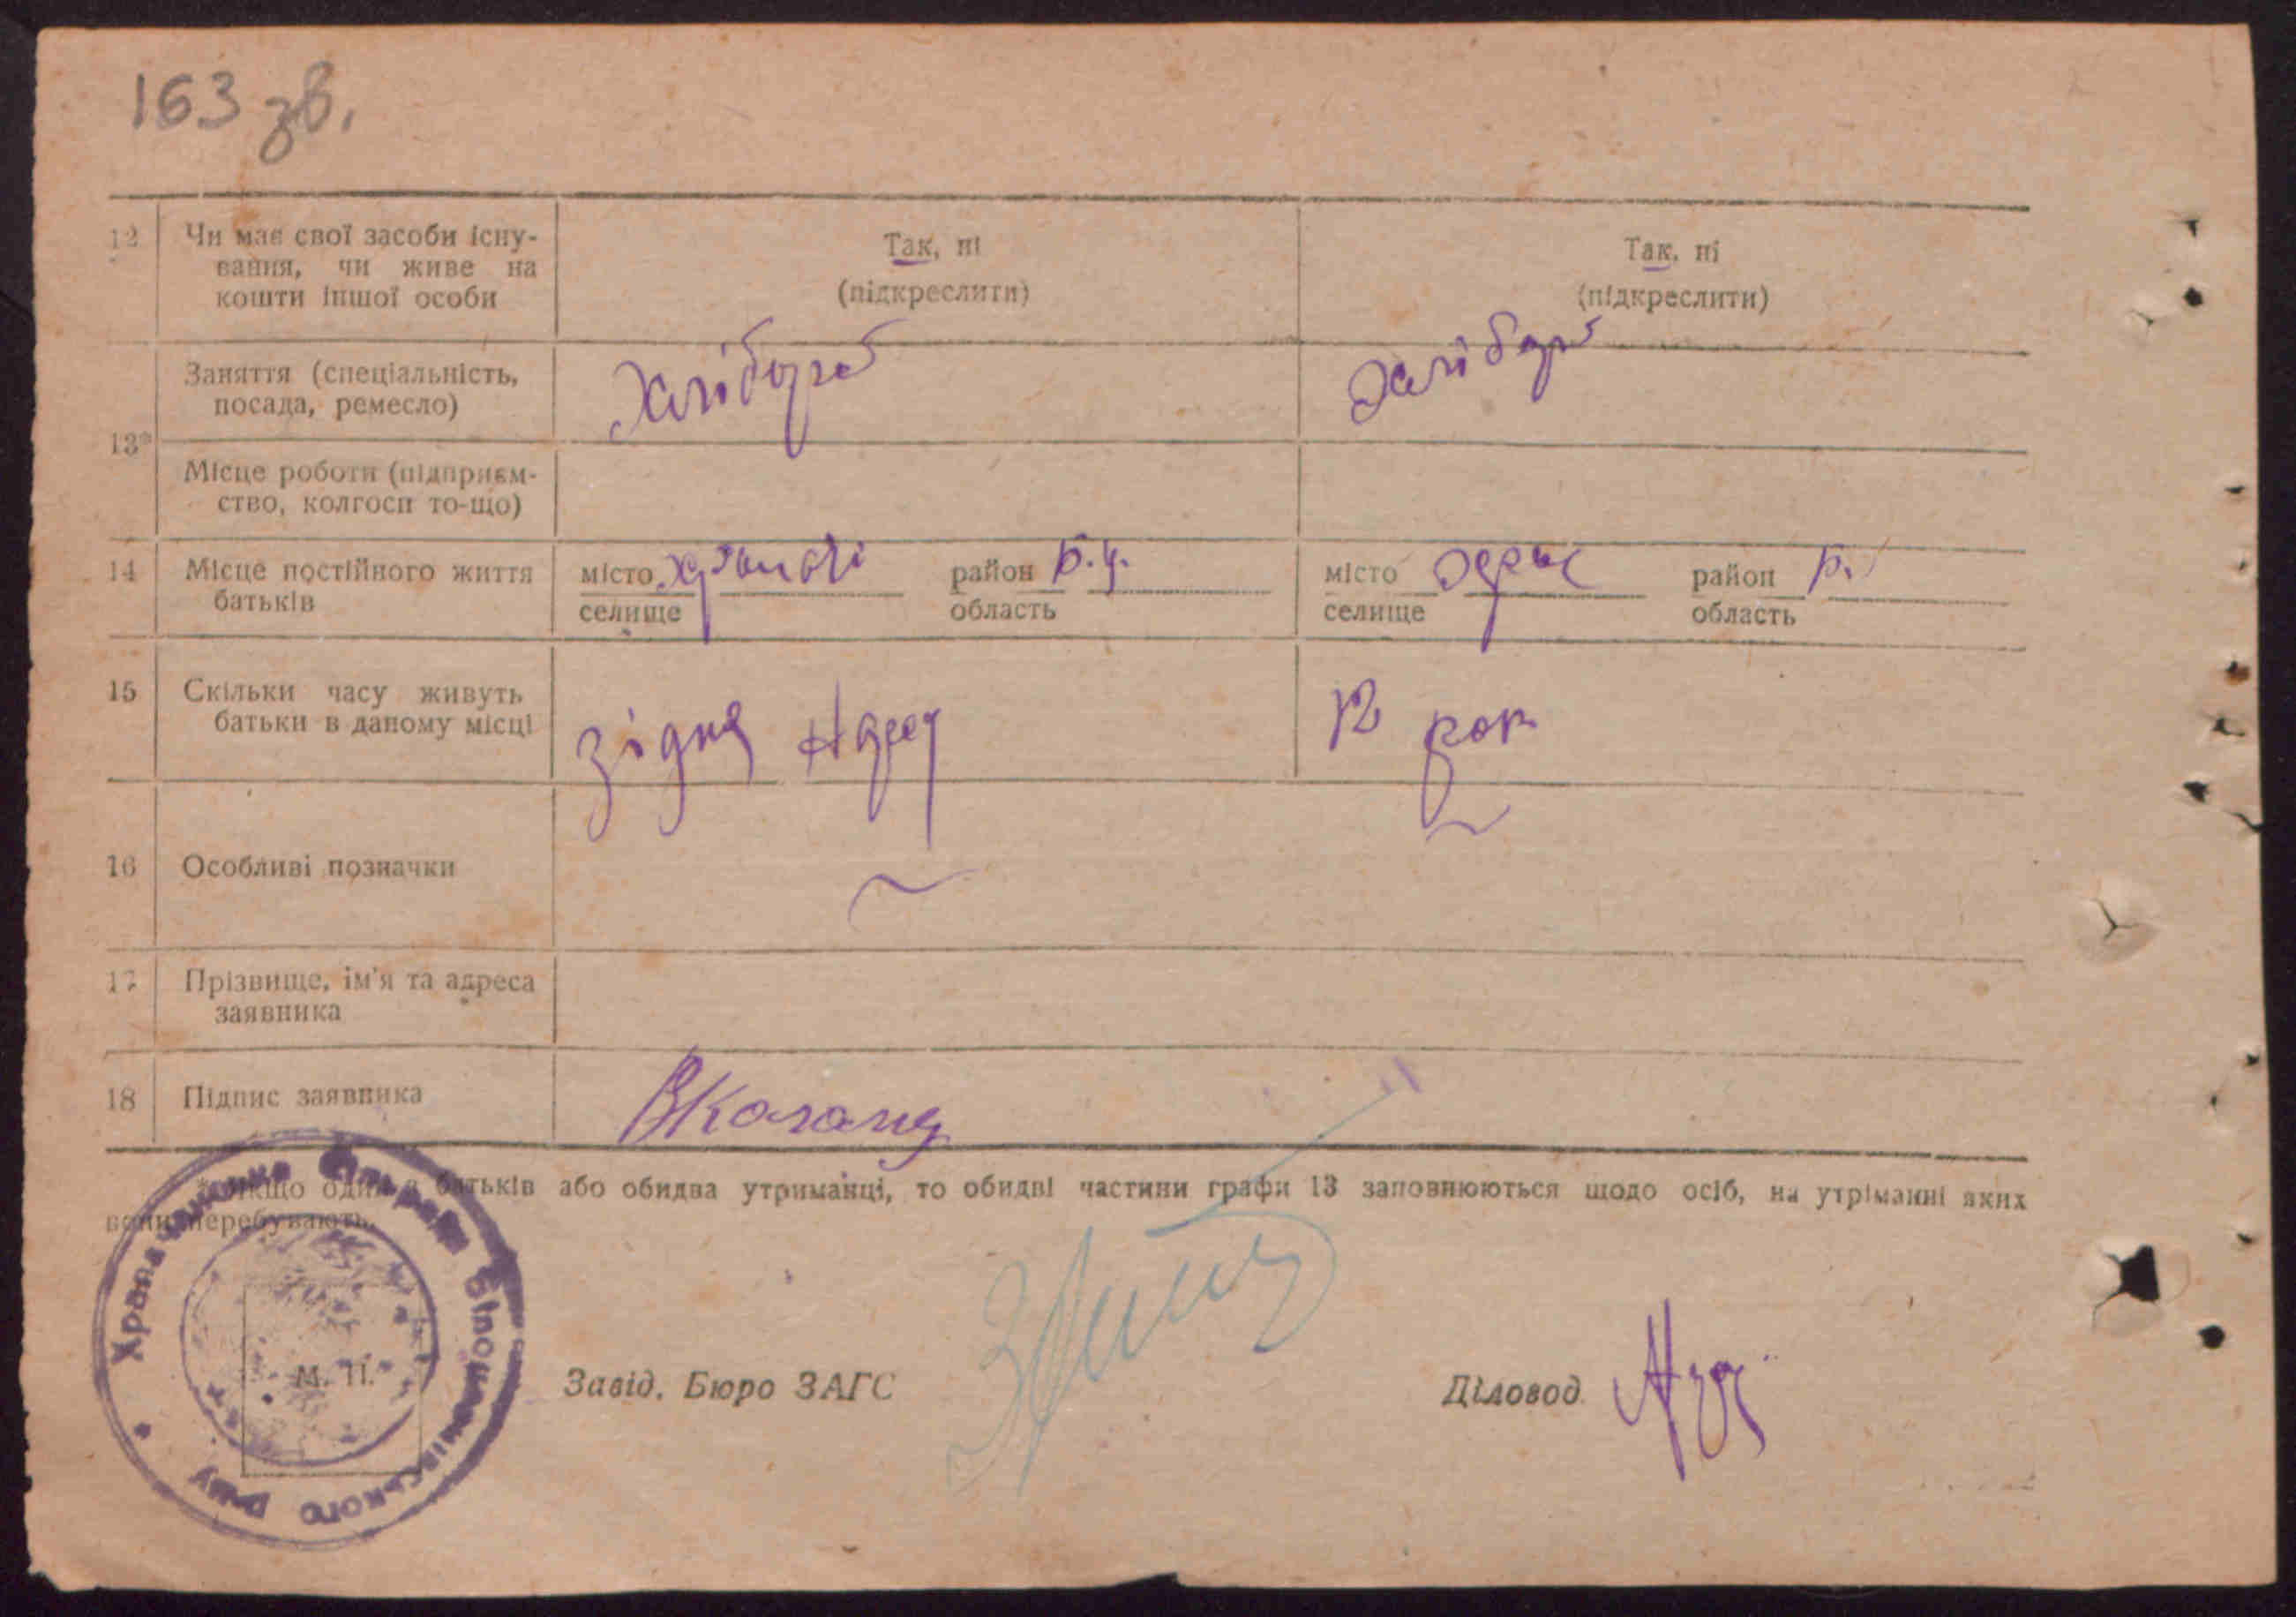 163 зв.
12 Чи має свої засоби існу-
вання, чи живе на
кошти іншої особи
Так, ні
(підкреслити)
Так, ні
(підкреслити)
13*
Заняття (спеціальність,
посада, ремесло)
Хлібороб
Хлібор
Місце роботи (підприєм-
ство, колгосп то-що)
14 Місце постійного життя
батьків
місто
селище
район Б.Ц.
область
місто
селище
район Б.
область
15 Скільки часу живуть
батьки в даному місці
зідня
12 рок
16 Особливі позначки
17 Прізвище, ім'я та адреса
заявника
18 Підпис заявника
* Якщо один з батьків або обидва утриманці, то обидві частини графи 13 заповнюються щодо осіб, на утріманні яких
вони перебувають.
М. П.
Завід. Бюро ЗАГС
Діловод